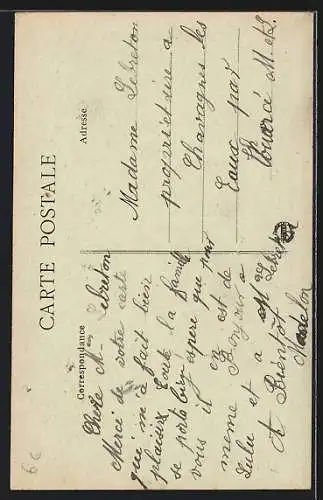 CARTE POSTALE
Correspondance
Adresse
Chère Mme Lebreton
Merci de votre carte
qui m a fait bien
plaisir Toute la famille
se porte bien espère que pour
vous il en est de
meme Bonjour a
Lulu et a Mr Lebreton
A Bientôt
Madame Lebreton
propriétaire a
Chavagnes les
Eaux par
Thouarcé M. et L.
6c